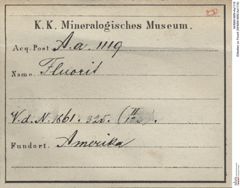 K. K. Mineralogisches Museum.
Acq. Post A.a. 1119
Name: Fluorit
V. d. N. 1861. 325.
Fundort: Amerika